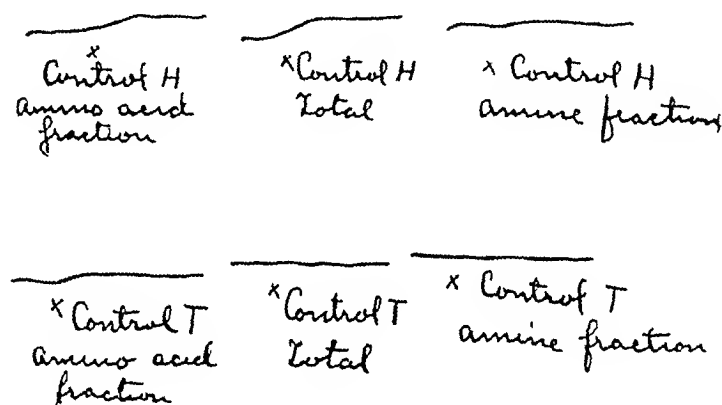 x
Control H
amino acid
fraction
x Control H
Total
x Control H
amine fraction
x Control T
amino acid
fraction
x Control T
Total
x Control T
amine fraction